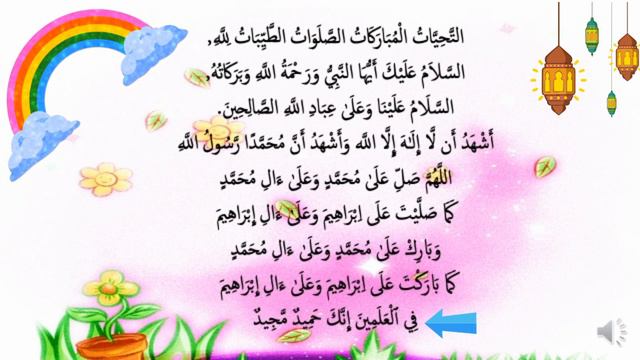 التَّحِيَّاتُ الْمُبَارَكَاتُ الصَّلَوَاتُ الطَّيِّبَاتُ لِلَّهِ,
السَّلَامُ عَلَيْكَ أَيُّهَا النَّبِيُّ وَرَحْمَةُ اللَّهِ وَبَرَكَاتُهُ,
السَّلَامُ عَلَيْنَا وَعَلَىٰ عِبَادِ اللَّهِ الصَّالِحِينَ.
أَشْهَدُ أَن لَّا إِلَـٰهَ إِلَّا اللَّه وَأَشْهَدُ أَنَّ مُحَمَّدًا رَّسُولُ اللَّهِ
اللَّهُمَّ صَلِّ عَلَىٰ مُحَمَّدٍ وَعَلَىٰ ءَالِ مُحَمَّدٍ
كَمَا صَلَّيْتَ عَلَى اِبْرَاهِيمَ وَعَلَىٰ ءَالِ إِبْرَاهِيمَ
وَبَارِكْ عَلَىٰ مُحَمَّدٍ وَعَلَىٰ ءَالِ مُحَمَّدٍ
كَمَا بَارَكْتَ عَلَى اِبْرَاهِيمَ وَعَلَىٰ ءَالِ إِبْرَاهِيمَ
فِي ٱلْعَلَمِينَ إِنَّكَ حَمِيدٌ مَّجِيدٌ